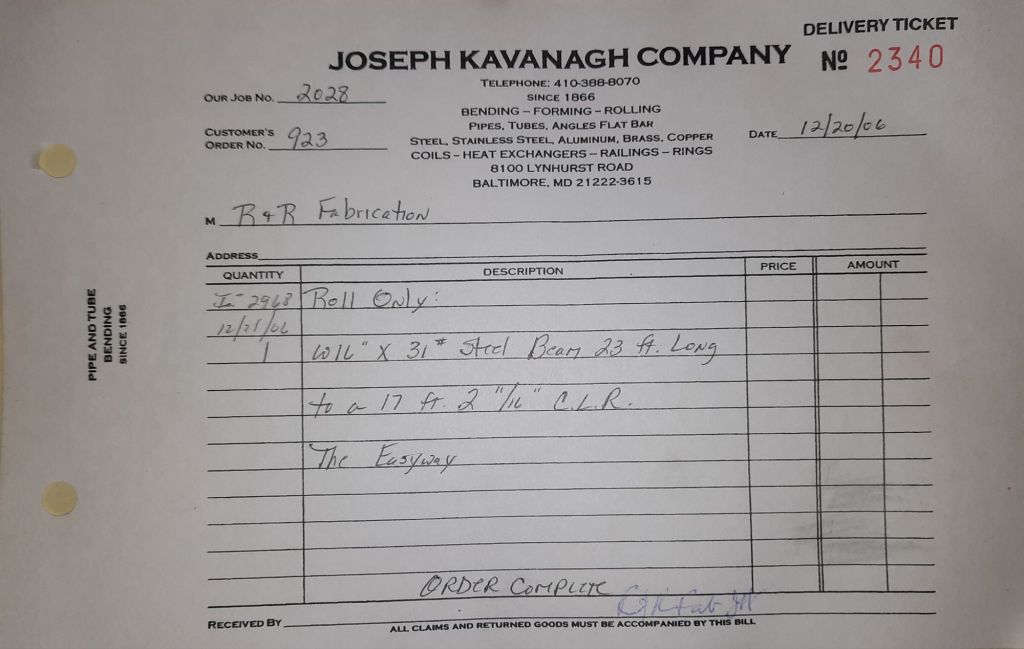 DELIVERY TICKET
JOSEPH KAVANAGH COMPANY
Nº 2340
TELEPHONE: 410-388-8070
OUR JOB NO. 2028
SINCE 1866
BENDING – FORMING – ROLLING
PIPES, TUBES, ANGLES FLAT BAR
CUSTOMER'S ORDER NO. 923
STEEL, STAINLESS STEEL, ALUMINUM, BRASS, COPPER
DATE 12/20/06
COILS – HEAT EXCHANGERS – RAILINGS – RINGS
8100 LYNHURST ROAD
BALTIMORE, MD 21222-3615
M R & R Fabrication
ADDRESS
QUANTITY DESCRIPTION PRICE AMOUNT
2968 Roll Only:
1 W16" X 31# Steel Beam 23 ft. Long
to a 17 ft. 2 11/16" C.L.R.
The Easyway
ORDER COMPLETE
RECEIVED BY
ALL CLAIMS AND RETURNED GOODS MUST BE ACCOMPANIED BY THIS BILL
PIPE AND TUBE
BENDING
SINCE 1866